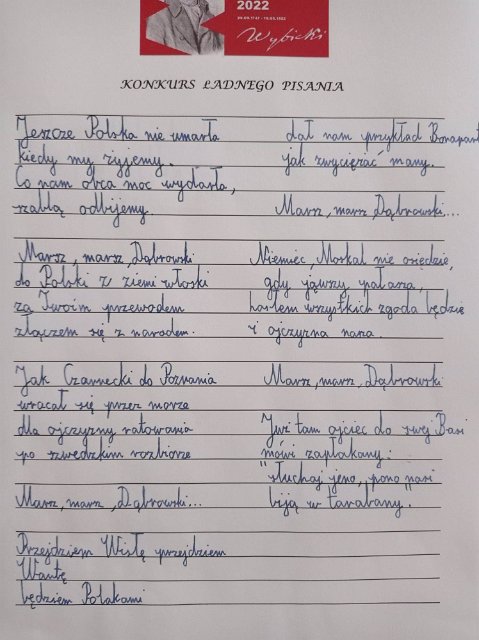 2022
Wybicki
KONKURS ŁADNEGO PISANIA
Jeszcze Polska nie umarła
kiedy my żyjemy.
Co nam obca moc wydarła,
szablą odbijemy.
Marsz, marsz, Dąbrowski
do Polski z ziemi włoski
za Twoim przewodem
złączem się z narodem.
Jak Czarnecki do Poznania
wracał się przez morze
dla ojczyzny ratowania
po szwedzkim rozbiorze
Marsz, marsz, Dąbrowski...
Przejdziem Wisłę przejdziem
Wartę
będziem Polakami
dał nam przykład Bonapart
jak zwyciężać mamy.
Marsz, marsz, Dąbrowski...
Niemiec, Moskal nie osiędzie,
gdy, jąwszy, pałasza,
hasłem wszystkich zgoda będzie
i ojczyzna nasza.
Marsz, marsz, Dąbrowski
Już tam ojciec do swej Basi
mówi zapłakany:
"słuchaj jeno, pono "nasi
biją w tarabany."